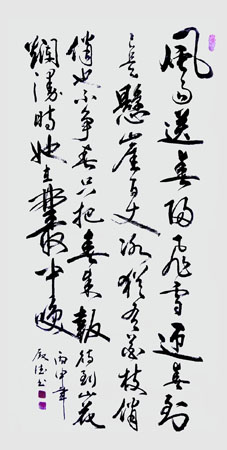 風雨送春歸飛雪迎春到
已是懸崖百丈冰猶有花枝俏
俏也不争春只把春来報待到山花
爛漫時她在叢中笑
丙申年